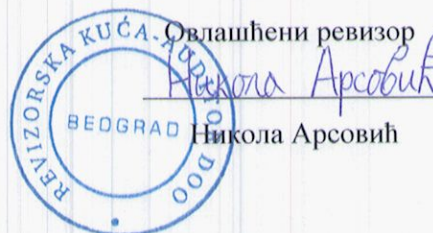 Овлашћени ревизор
Никола Арсовић
Никола Арсовић
REVIZORSKA KUĆA-AUDITOR DOO
BEOGRAD